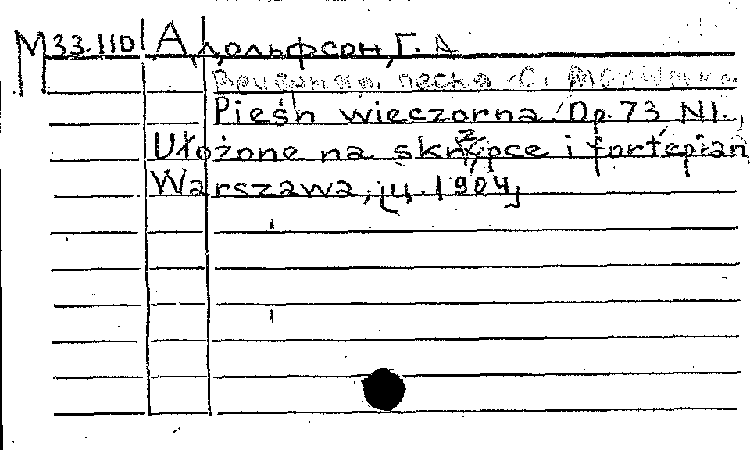 М 33.110 Адольфсон, Г. А
Вечерняя песня. С. Монюшко.
Pieśń wieczorna. Op. 73 N1.,
Ułożone na skrzypce i fortepian
Warszawa, 1904